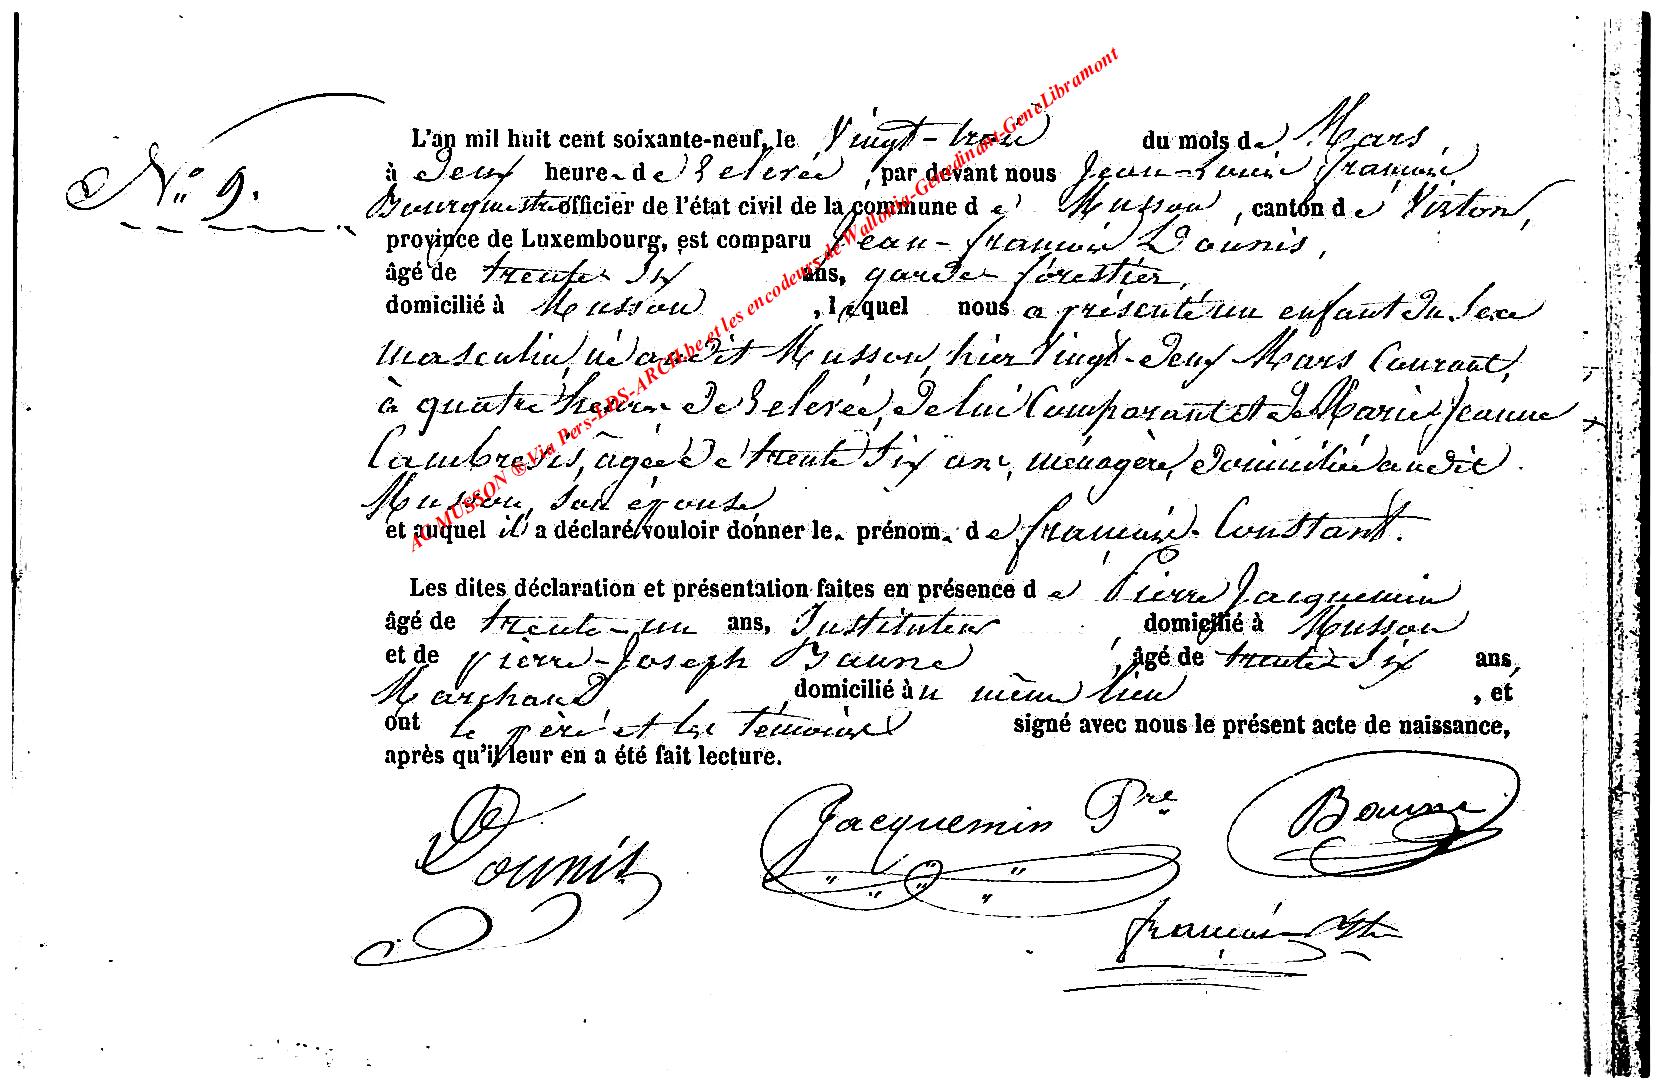 N° 9.
L'an mil huit cent soixante-neuf, le Vingt-trois du mois de Mars,
à deux heures de relevée, par devant nous Jean-Louis François
Bourguemestre officier de l'état civil de la commune de Musson, canton de Virton,
province de Luxembourg, est comparu Jean-françois Dounis,
âgé de trente six ans, garde forestier,
domicilié à Musson, lequel nous a présenté un enfant du Sexe
masculin, né audit Musson, hier Vingt-deux Mars Courant,
à quatre heures de relevée, de lui Comparant et de Marie Jeanne
Cambresis, âgée de trente six ans, ménagère, domiciliée audit
Musson, son épouse,
et auquel il a déclaré vouloir donner les prénoms de françois-Constant.
Les dites déclaration et présentation faites en présence de Pierre Jacquemin
âgé de trente-un ans, Instituteur domicilié à Musson
et de pierre-Joseph Baune, âgé de trente six ans,
Marchand, domicilié au même lieu, et
ont le père et les témoins signé avec nous le présent acte de naissance,
après qu'il leur en a été fait lecture.
Dounis
Jacquemin Pre
Baune
françois
AC MUSSON ® Via Pers-LDS-ARCH.be et les encodeurs de Wallonia-Genedinant-GeneLibramont